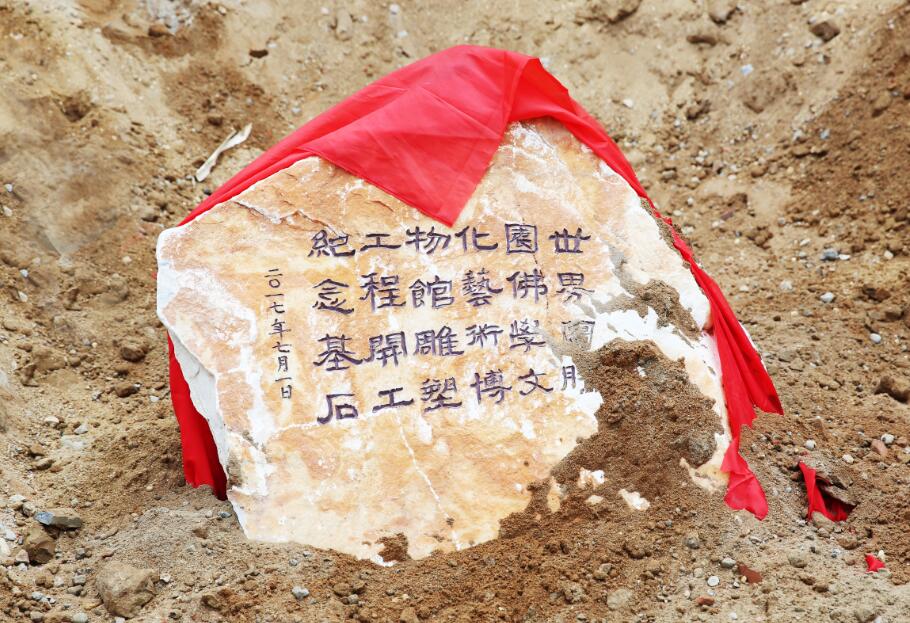 世界
園佛學文
化藝術博
物館雕塑
工程開工
紀念基石
二〇一七年七月一日